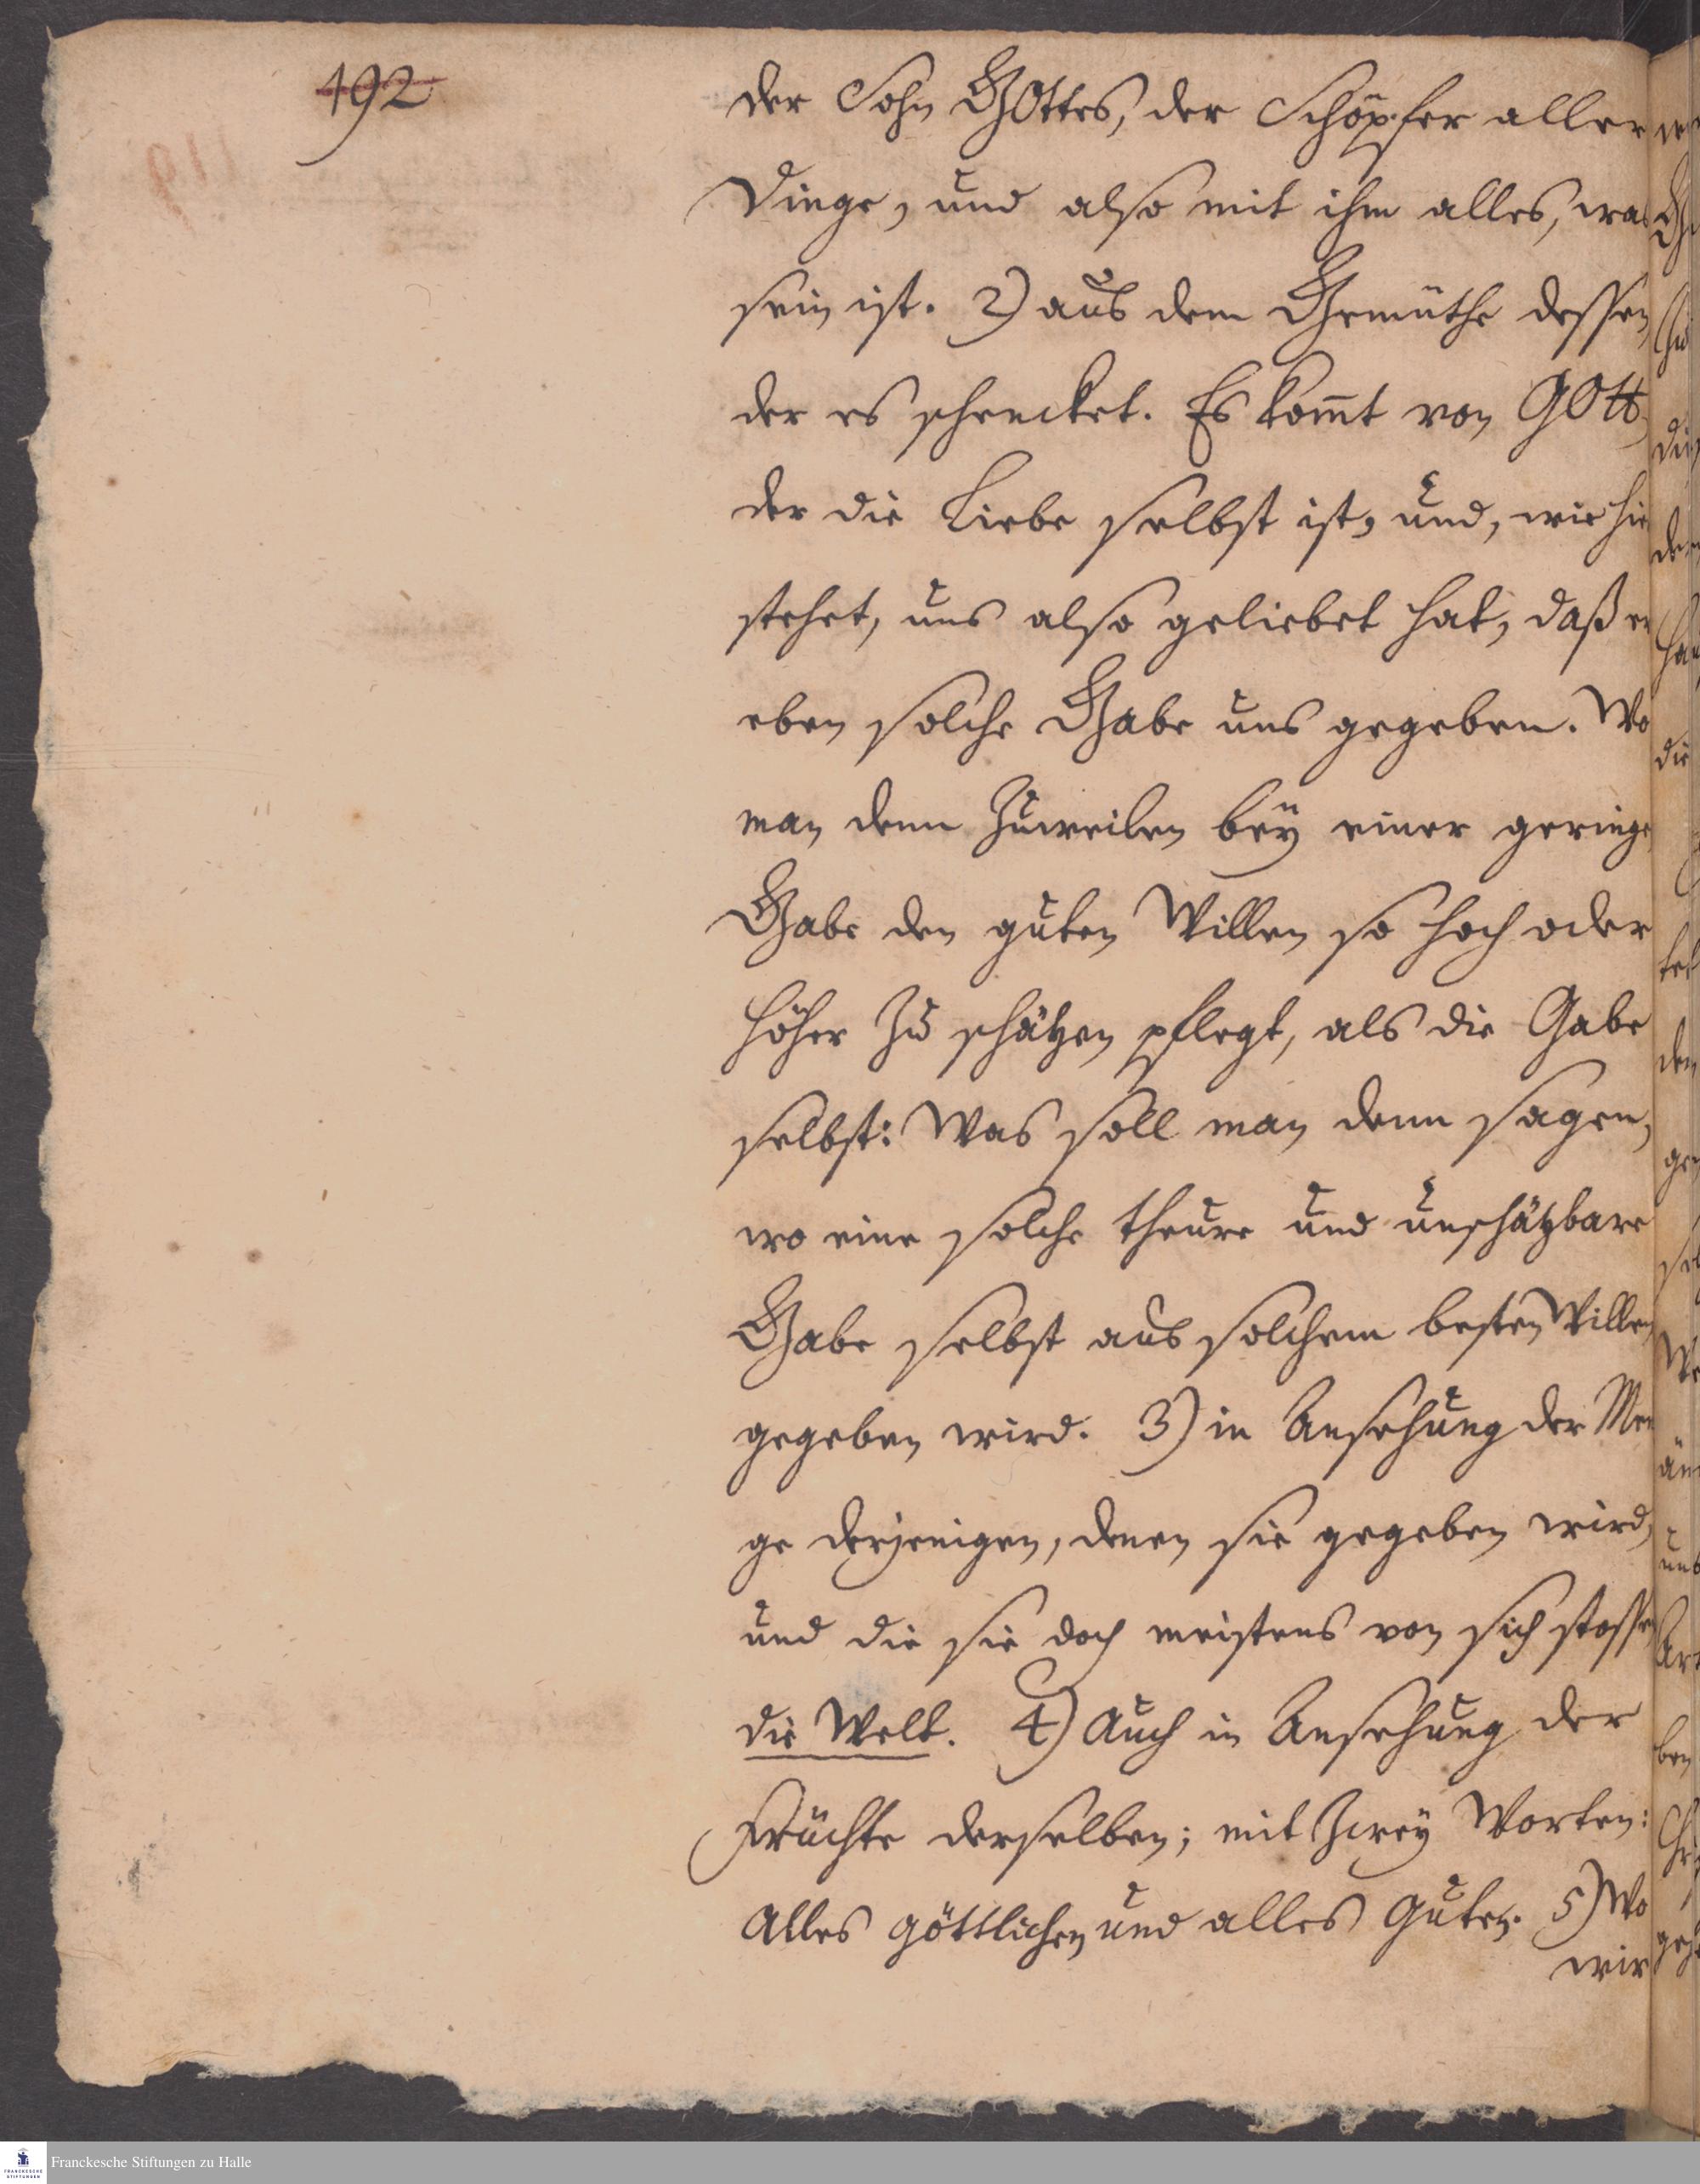 192
der Sohn GOttes, der Schöpfer aller
Dinge, und also mit ihm alles, was
sein ist. 2) aus dem Gemüthe dessen,
der es schencket. Es kom̄t von GOtt,
der die Liebe selbst ist, und, wie hie
stehet, uns also geliebet hat, daß er
eben solche Gabe uns gegeben. Wo
man denn zuweilen beÿ einer geringe
Gabe den guten Willen so hoch oder
höher zu schätzen pflegt, als die Gabe
selbst: Was soll man denn sagen,
wo eine solche theure und unschätzbare
Gabe selbst aus solchem besten Willen
gegeben wird. 3) in Ansehung der Men
ge derjenigen, denen sie gegeben wird,
und die sie doch meistens von sich stossen
die Welt. 4) Auch in Ansehung der
Früchte derselben; mit zweÿ Worten:
Alles göttlichen und alles Guten. 5) Wo
wir
Franckesche Stiftungen zu Halle
FRANCKESCHE
STIFTUNGEN